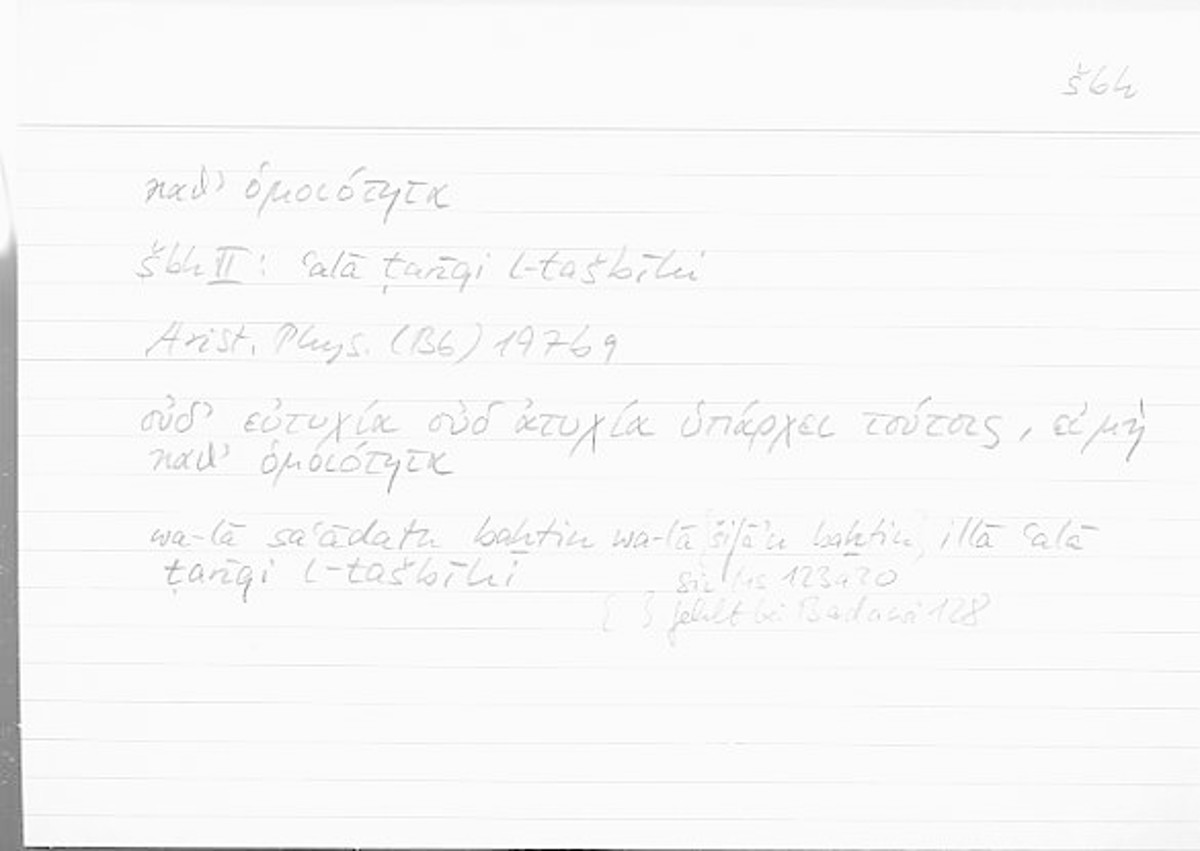 šbh
καθ' ὁμοιότητα
šbh II: ʿalā ṭarīqi l-tašbīhi
Arist. Phys. (B6) 197b9
οὐδ' εὐτυχία οὐδ' ἀτυχία ὑπάρχει τούτοις, εἰ μὴ
καθ' ὁμοιότητα
wa-lā saʿādatu baḫtin wa-lā {šifāʾu baḫtin} illā ʿalā
ṭarīqi l-tašbīhi
sic Hs 123a20
{ } fehlt bei Badawi 128